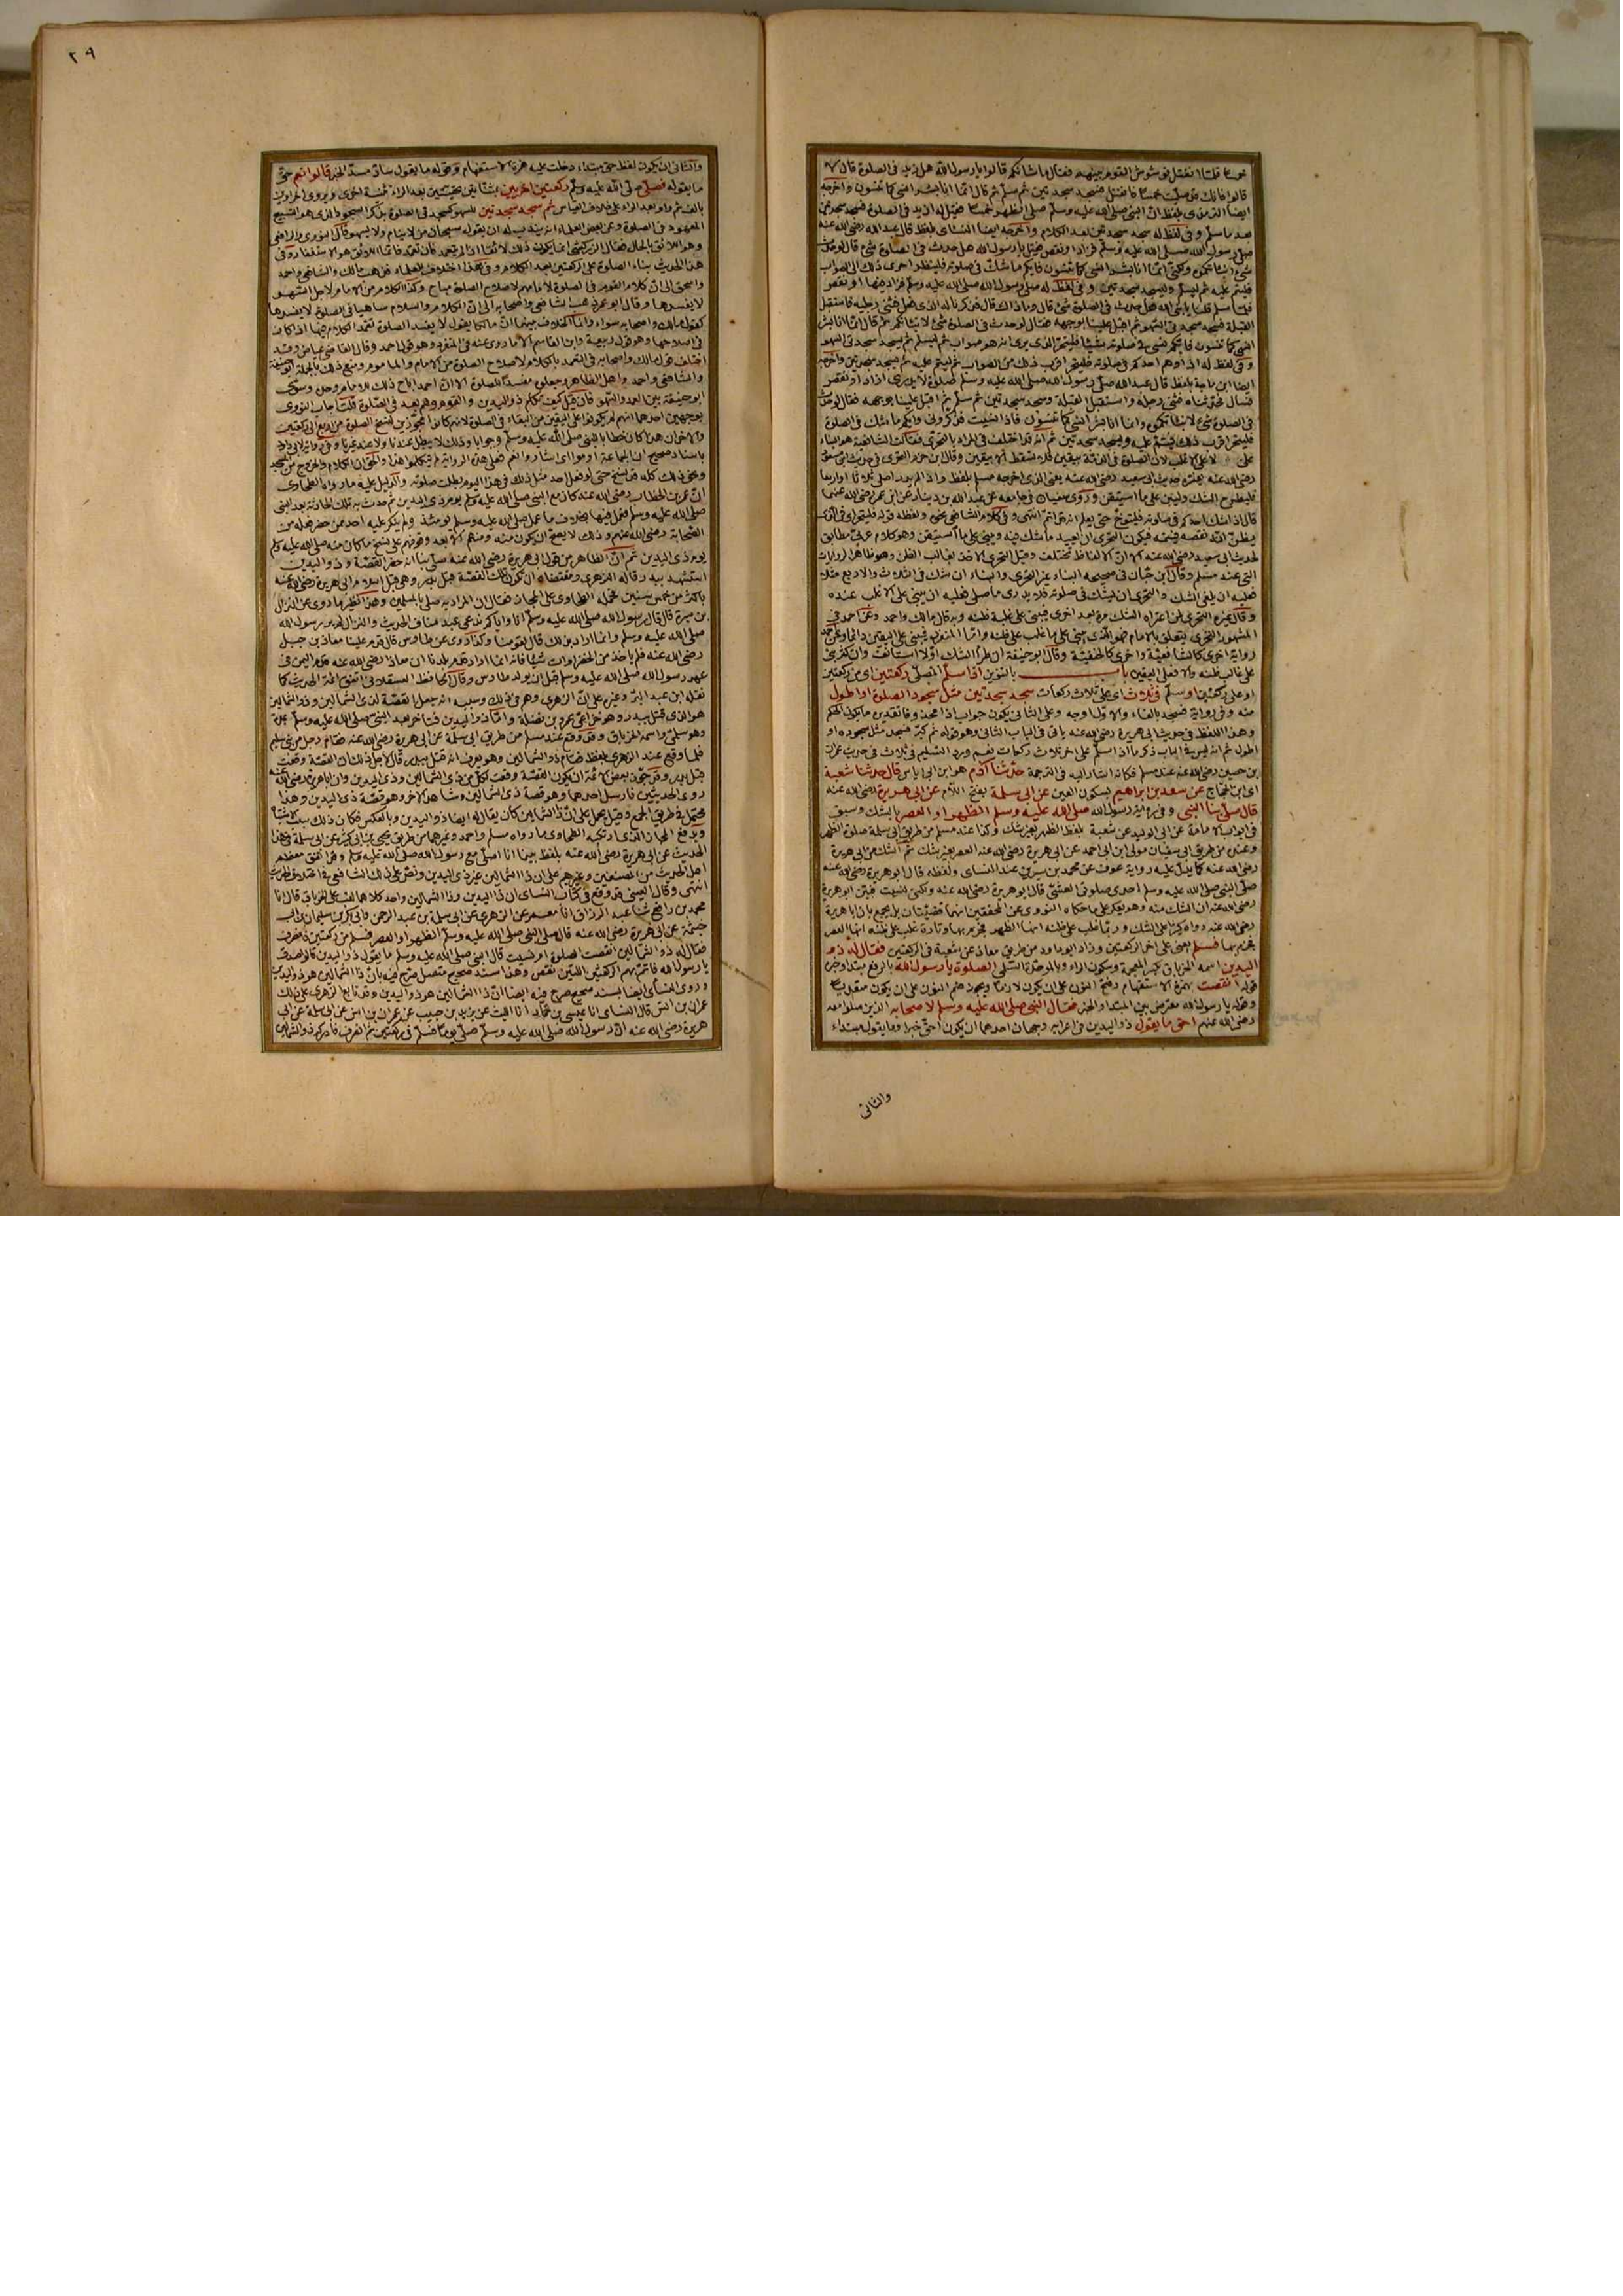 خمسا قلنا انفتل توشوش القوم بينهم فقال ما شانكم قالوا يا رسول الله هل زيد في الصلوة قال لا
قالوا فانك قد صليت خمسا فانفتل فسجد سجدتين ثم سلم ثم قال انما انا بشر انسى كما تنسون واخرجه
ايضا الترمذي بلفظ ان النبي صلى الله عليه وسلم صلى الظهر خمسا فقيل له ازيد في الصلوة فسجد سجدتين
بعد ما سلم وفي لفظ له سجد سجدتين بعد الكلام واخرجه ايضا النسائي بلفظ قال عبد الله رضي الله عنه
صلى رسول الله صلى الله عليه وسلم فزاد او نقص فقيل يا رسول الله هل حدث في الصلوة شيء قال لو حدث
شيء انبأتكموه ولكني انما انا بشر انسى كما تنسون فايكم ما شك في صلوته فلينظر احرى ذلك الى الصواب
فليتم عليه ثم ليسلم وليسجد سجدتين وفي لفظ له صلى رسول الله صلى الله عليه وسلم فزاد فيها او نقص
فلما سلم قلنا يا نبي الله هل حدث في الصلوة شيء قال وما ذاك قال فذكرنا له الذي فعل فثنى رجليه فاستقبل
القبلة فسجد سجدتي السهو ثم اقبل علينا بوجهه فقال لو حدث في الصلوة شيء لانبأتكم ثم قال انما انا بشر
انسى كما تنسون فايكم نسي في صلوته شيئا فليتحر الذي يرى انه هو صواب ثم ليسلم ثم يسجد سجدتي السهو
وفي لفظ له اذا اوهم احدكم في صلوته فليتحر اقرب ذلك من الصواب ثم ليتم عليه ثم يسجد سجدتين واخرجه
ايضا ابن ماجة بلفظ قال عبد الله صلى رسول الله صلى الله عليه وسلم صلوة لا يدري ازاد او نقص
فسال فحدثناه فثنى رجله واستقبل القبلة وسجد سجدتين ثم سلم ثم اقبل علينا بوجهه فقال لو حدث
في الصلوة شيء لانبأتكموه وانما انا بشر انسى كما تنسون فاذا نسيت فذكروني وايكم ما شك في الصلوة
فليتحر اقرب ذلك فيتم عليه ويسجد سجدتين ثم انه قد اختلف في المراد بالتحري فقالت الشافعية هو البناء
على لا على الاغلب لان الصلوة في الذمة بيقين فلا تسقط الا بيقين وقال ابن حزم التحري في حديث ابن مسعود
رضي الله عنه يفسره حديث ابي سعيد رضي الله عنه يعني الذي اخرجه مسلم بلفظ واذا لم يدر اصلى ثلاثا او اربعا
فليطرح الشك وليبن على ما استيقن وروى سفيان في جامعه عن عبد الله بن دينار عن ابن عمر رضي الله عنهما
قال اذا شك احدكم في صلوته فليتوخ حتى يعلم انه قد اتم انتهى وفي كلام الشافعي نحوه ولفظه قوله فليتحر اي في الذي
يظن انه نقصه فيتمه فيكون التحري ان يعيد ما شك فيه ويبني على ما استيقن وهو كلام عربي مطابق
لحديث ابي سعيد رضي الله عنه الا ان الالفاظ تختلف وقيل التحري الاخذ بغالب الظن وهو ظاهر الروايات
التي عند مسلم وقال ابن حبان في صحيحه البناء غير التحري والبناء ان يشك في الثلاث والاربع مثلا
فعليه ان يلغي الشك والتحري ان يشك في صلوته فلا يدري ما صلى فعليه ان يبني على الاغلب عنده
وقال غيره التحري لمن اعتراه الشك مرة بعد اخرى فيبني على غلبة ظنه وبه قال مالك واحمد وعن احمد في
المشهور التحري يتعلق بالامام فهو الذي يبني على ما غلب على ظنه واما المنفرد فيبني على اليقين دائما وعن احمد
رواية اخرى كالشافعية واخرى كالحنفية وقال ابو حنيفة ان طرأ الشك اولا استانف وان كثر بنى
على غالب ظنه والا فعلى اليقين باب بالتنوين اذا سلم المصلي ركعتين اي من ركعتين
او على ركعتين او سلم في ثلاث اي على ثلاث ركعات سجد سجدتين مثل سجود الصلوة او اطول
منه وفي رواية فسجد بالفاء والاول اوجه وعلى الثاني يكون جواب اذا محذوفا تقديره ما يكون الحكم
وهذا اللفظ في حديث ابي هريرة رضي الله عنه ياتي في الباب الثاني وهو قوله ثم كبر فسجد مثل سجوده او
اطول ثم انه ليس في الباب ذكر ما اذا سلم على اخر ثلاث ركعات نعم ورد التسليم في ثلاث في حديث عمران
بن حصين رضي الله عنه عند مسلم فكانه اشار اليه في الترجمة حدثنا آدم هو ابن ابي اياس قال حدثنا شعبة
اي ابن الحجاج عن سعد بن ابراهيم بسكون العين عن ابي سلمة بفتح اللام عن ابي هريرة رضي الله عنه
قال صلى بنا النبي وفي رواية رسول الله صلى الله عليه وسلم الظهر او العصر بالشك وسبق
في ابواب الامامة عن ابي الوليد عن شعبة بلفظ الظهر بغير شك وكذا عند مسلم من طريق ابي سلمة صلوة الظهر
وعنده من طريق ابي سفيان مولى ابن ابي احمد عن ابي هريرة رضي الله عنه العصر بغير شك ثم الشك من ابي هريرة
رضي الله عنه كما يدل عليه رواية عوف عن محمد بن سيرين عند النسائي ولفظه قال ابو هريرة رضي الله عنه
صلى النبي صلى الله عليه وسلم احدى صلوتي العشي قال ابو هريرة رضي الله عنه ولكني نسيت فبين ابو هريرة
رضي الله عنه ان الشك منه وهو يعكر على ما حكاه النووي عن المحققين انهما قضيتان بل يجمع بان ابا هريرة
رضي الله عنه رواه كثيرا على الشك وربما غلب على ظنه انها الظهر فجزم بها وتارة غلب على ظنه انها العصر
فجزم بها فسلم يعني على اخر الركعتين وزاد ابو داود من طريق معاذ عن شعبة في الركعتين فقال له ذو
اليدين اسمه الخرباق بكسر المعجمة وسكون الراء وبالموحدة السلمي الصلوة يا رسول الله بالرفع مبتدا وخبره
قوله انقصت بهمزة الاستفهام وفتح النون على ان يكون لازما ويجوز ضم النون على ان يكون متعديا
وقوله يا رسول الله معترض بين المبتدا والخبر فقال النبي صلى الله عليه وسلم لاصحابه الذين صلوا معه
رضي الله عنهم احق ما يقول ذو اليدين في اعرابه وجهان احدهما ان يكون احق خبرا وما يقول مبتداء
والثاني
٢٩
والثاني ان يكون لفظ حق مبتداء دخلت عليه همزة الاستفهام وقوله ما يقول ساد مسد الخبر قالوا نعم حق
ما يقوله فصلى صلى الله عليه وسلم ركعتين اخريين بمثناتين تحتيتين بعد الراء تثنية اخرى ويروى اخراوين
بالف ثم واو بعد الراء على خلاف القياس ثم سجد سجدتين للسهو كسجدتي الصلوة يذكر السجود الذي هو التسبيح
المعهود في الصلوة وعن بعض العلماء انه يندب له ان يقول سبحان من لا ينام ولا يسهو قال النووي والرافعي
وهو اللائق بالحال فقال الزركشي انما يكون ذلك لائقا اذا لم يتعمد فان تعمد فانما اللائق هو الاستغفار وفي
هذا الحديث بناء الصلوة على الركعتين بعد الكلام وفي هذا اختلاف للعلماء فذهب مالك والشافعي واحمد
واسحق الى ان كلام القوم في الصلوة لامامهم لاصلاح الصلوة مباح وكذا الكلام من الامام لاجل السهو
لا يفسدها وقال ابو عمر ذهب الشافعي واصحابه الى ان الكلام والسلام ساهيا في الصلوة لا يفسدها
كقول مالك واصحابه سواء وانما الخلاف بينهما ان مالكا يقول لا يفسد الصلوة تعمد الكلام فيها اذا كان
في اصلاحها وهو قول ربيعة وابن القاسم الا ما روي عنه في المنفرد وهو قول احمد وقال القاضي عياض وقد
اختلف قول مالك واصحابه في التعمد بالكلام لاصلاح الصلوة من الامام والماموم ومنع ذلك بالجملة ابو حنيفة
والشافعي واحمد واهل الظاهر وجعلوه مفسدا للصلوة الا ان احمد اباح ذلك للامام وحده وسوى
ابو حنيفة بين العمد والسهو فان قيل كيف تكلم ذو اليدين والقوم وهم بعد في الصلوة قلت اجاب النووي
بوجهين احدهما انهم لم يكونوا على اليقين من البقاء في الصلوة لانهم كانوا مجوزين لنسخ الصلوة من اربع الى ركعتين
والاخر ان هذا كان خطابا للنبي صلى الله عليه وسلم وجوابا وذلك لا يبطل عندنا ولا عند غيرنا وفي رواية لابي داود
باسناد صحيح ان الجماعة اومؤا اي اشاروا نعم فعلى هذه الرواية لم يتكلموا هذا والحق ان الكلام والخروج من المسجد
ونحو ذلك كله قد نسخ حتى لو فعل احد مثل ذلك في هذا اليوم بطلت صلوته والدليل عليه ما رواه الطحاوي
ان عمر بن الخطاب رضي الله عنه كان مع النبي صلى الله عليه وسلم يوم ذي اليدين ثم حدث به تلك الحادثة بعد النبي
صلى الله عليه وسلم فعمل فيها بخلاف ما عمل صلى الله عليه وسلم يومئذ ولم ينكر عليه احد ممن حضر فعله من
الصحابة رضي الله عنهم وذلك لا يصح ان يكون منه ومنهم الا بعد وقوفهم على نسخ ما كان منه صلى الله عليه وسلم
يوم ذي اليدين ثم ان الظاهر من قول ابي هريرة رضي الله عنه صلى بنا انه حضر القصة وذو اليدين
استشهد ببدر قاله الزهري ومقتضاه ان تكون تلك القصة قبل بدر وهي قبل اسلام ابي هريرة رضي الله عنه
باكثر من خمس سنين فحمله الطحاوي على المجاز فقال ان المراد به صلى بالمسلمين وهذا نظير ما روي عن النزال
بن سبرة قال قال رسول الله صلى الله عليه وسلم انا واياكم ندعى عبد مناف الحديث والنزال لم ير رسول الله
صلى الله عليه وسلم وانما اراد بذلك قال لقومنا وكذا روي عن طاوس قال قدم علينا معاذ بن جبل
رضي الله عنه فلم ياخذ من الخضراوات شيئا فانه انما اراد قدم بلدنا لان معاذا رضي الله عنه قدم اليمن في
عهد رسول الله صلى الله عليه وسلم قبل ان يولد طاوس وقال الحافظ العسقلاني اتفق ائمة الحديث كما
نقله ابن عبد البر وغيره على ان الزهري وهم في ذلك وسببه انه جعل القصة لذي الشمالين وذو الشمالين
هو الذي قتل ببدر وهو خزاعي عمرو بن نضلة واما ذو اليدين فتاخر بعد النبي صلى الله عليه وسلم بمدة
وهو سلمي واسمه الخرباق وقد وقع عند مسلم من طريق ابي سلمة عن ابي هريرة رضي الله عنه فقام رجل من بني سليم
فلما وقع عند الزهري بلفظ فقام ذو الشمالين وهو يعرف انه قتل ببدر قال لاجل ذلك ان القصة وقعت
قبل بدر وقد جوز بعض الائمة ان يكون القصة وقعت لكل من ذي الشمالين وذي اليدين وان ابا هريرة رضي الله عنه
روى الحديثين فارسل احدهما وهو قصة ذي الشمالين وشاهد الاخر وهو قصة ذي اليدين وهذا
محتمل في طريق الجمع وقيل يحمل على ان ذا الشمالين كان يقال له ايضا ذو اليدين وبالعكس فكان ذلك سبب الاشتباه
ويدفع المجاز الذي ارتكبه الطحاوي ما رواه مسلم واحمد وغيرهما من طريق يحيى بن ابي كثير عن ابي سلمة في هذا
الحديث عن ابي هريرة رضي الله عنه بلفظ بينما انا اصلي مع رسول الله صلى الله عليه وسلم وقد اتفق معظم
اهل الحديث من المصنفين وغيرهم على ان ذا الشمالين غير ذي اليدين ونص على ذلك الشافعي في اختلاف الحديث
انتهى وقال العيني قد وقع في كتاب النسائي ان ذا اليدين وذا الشمالين واحد كلاهما لقب على الخرباق قال انا
محمد بن رافع ثنا عبد الرزاق انا معمر عن الزهري عن ابي سلمة بن عبد الرحمن وابي بكر بن سليمان بن ابي
خيثمة عن ابي هريرة رضي الله عنه قال صلى النبي صلى الله عليه وسلم الظهر او العصر فسلم من ركعتين فانصرف
فقال له ذو الشمالين انقصت الصلوة ام نسيت قال النبي صلى الله عليه وسلم ما يقول ذو اليدين قالوا صدق
يا رسول الله فاتم بهم الركعتين اللتين نقص وهذا سند صحيح متصل صرح فيه بان ذا الشمالين هو ذو اليدين
وروى النسائي ايضا بسند صحيح صرح فيه ايضا ان ذا الشمالين هو ذو اليدين وقد تابع الزهري على ذلك
عمران بن انس قال النسائي انا عيسى بن حماد انا الليث عن يزيد بن حبيب عن عمران بن انس عن ابي سلمة عن ابي
هريرة رضي الله عنه ان رسول الله صلى الله عليه وسلم صلى يوما فسلم في ركعتين ثم انصرف فادركه ذو الشمالين